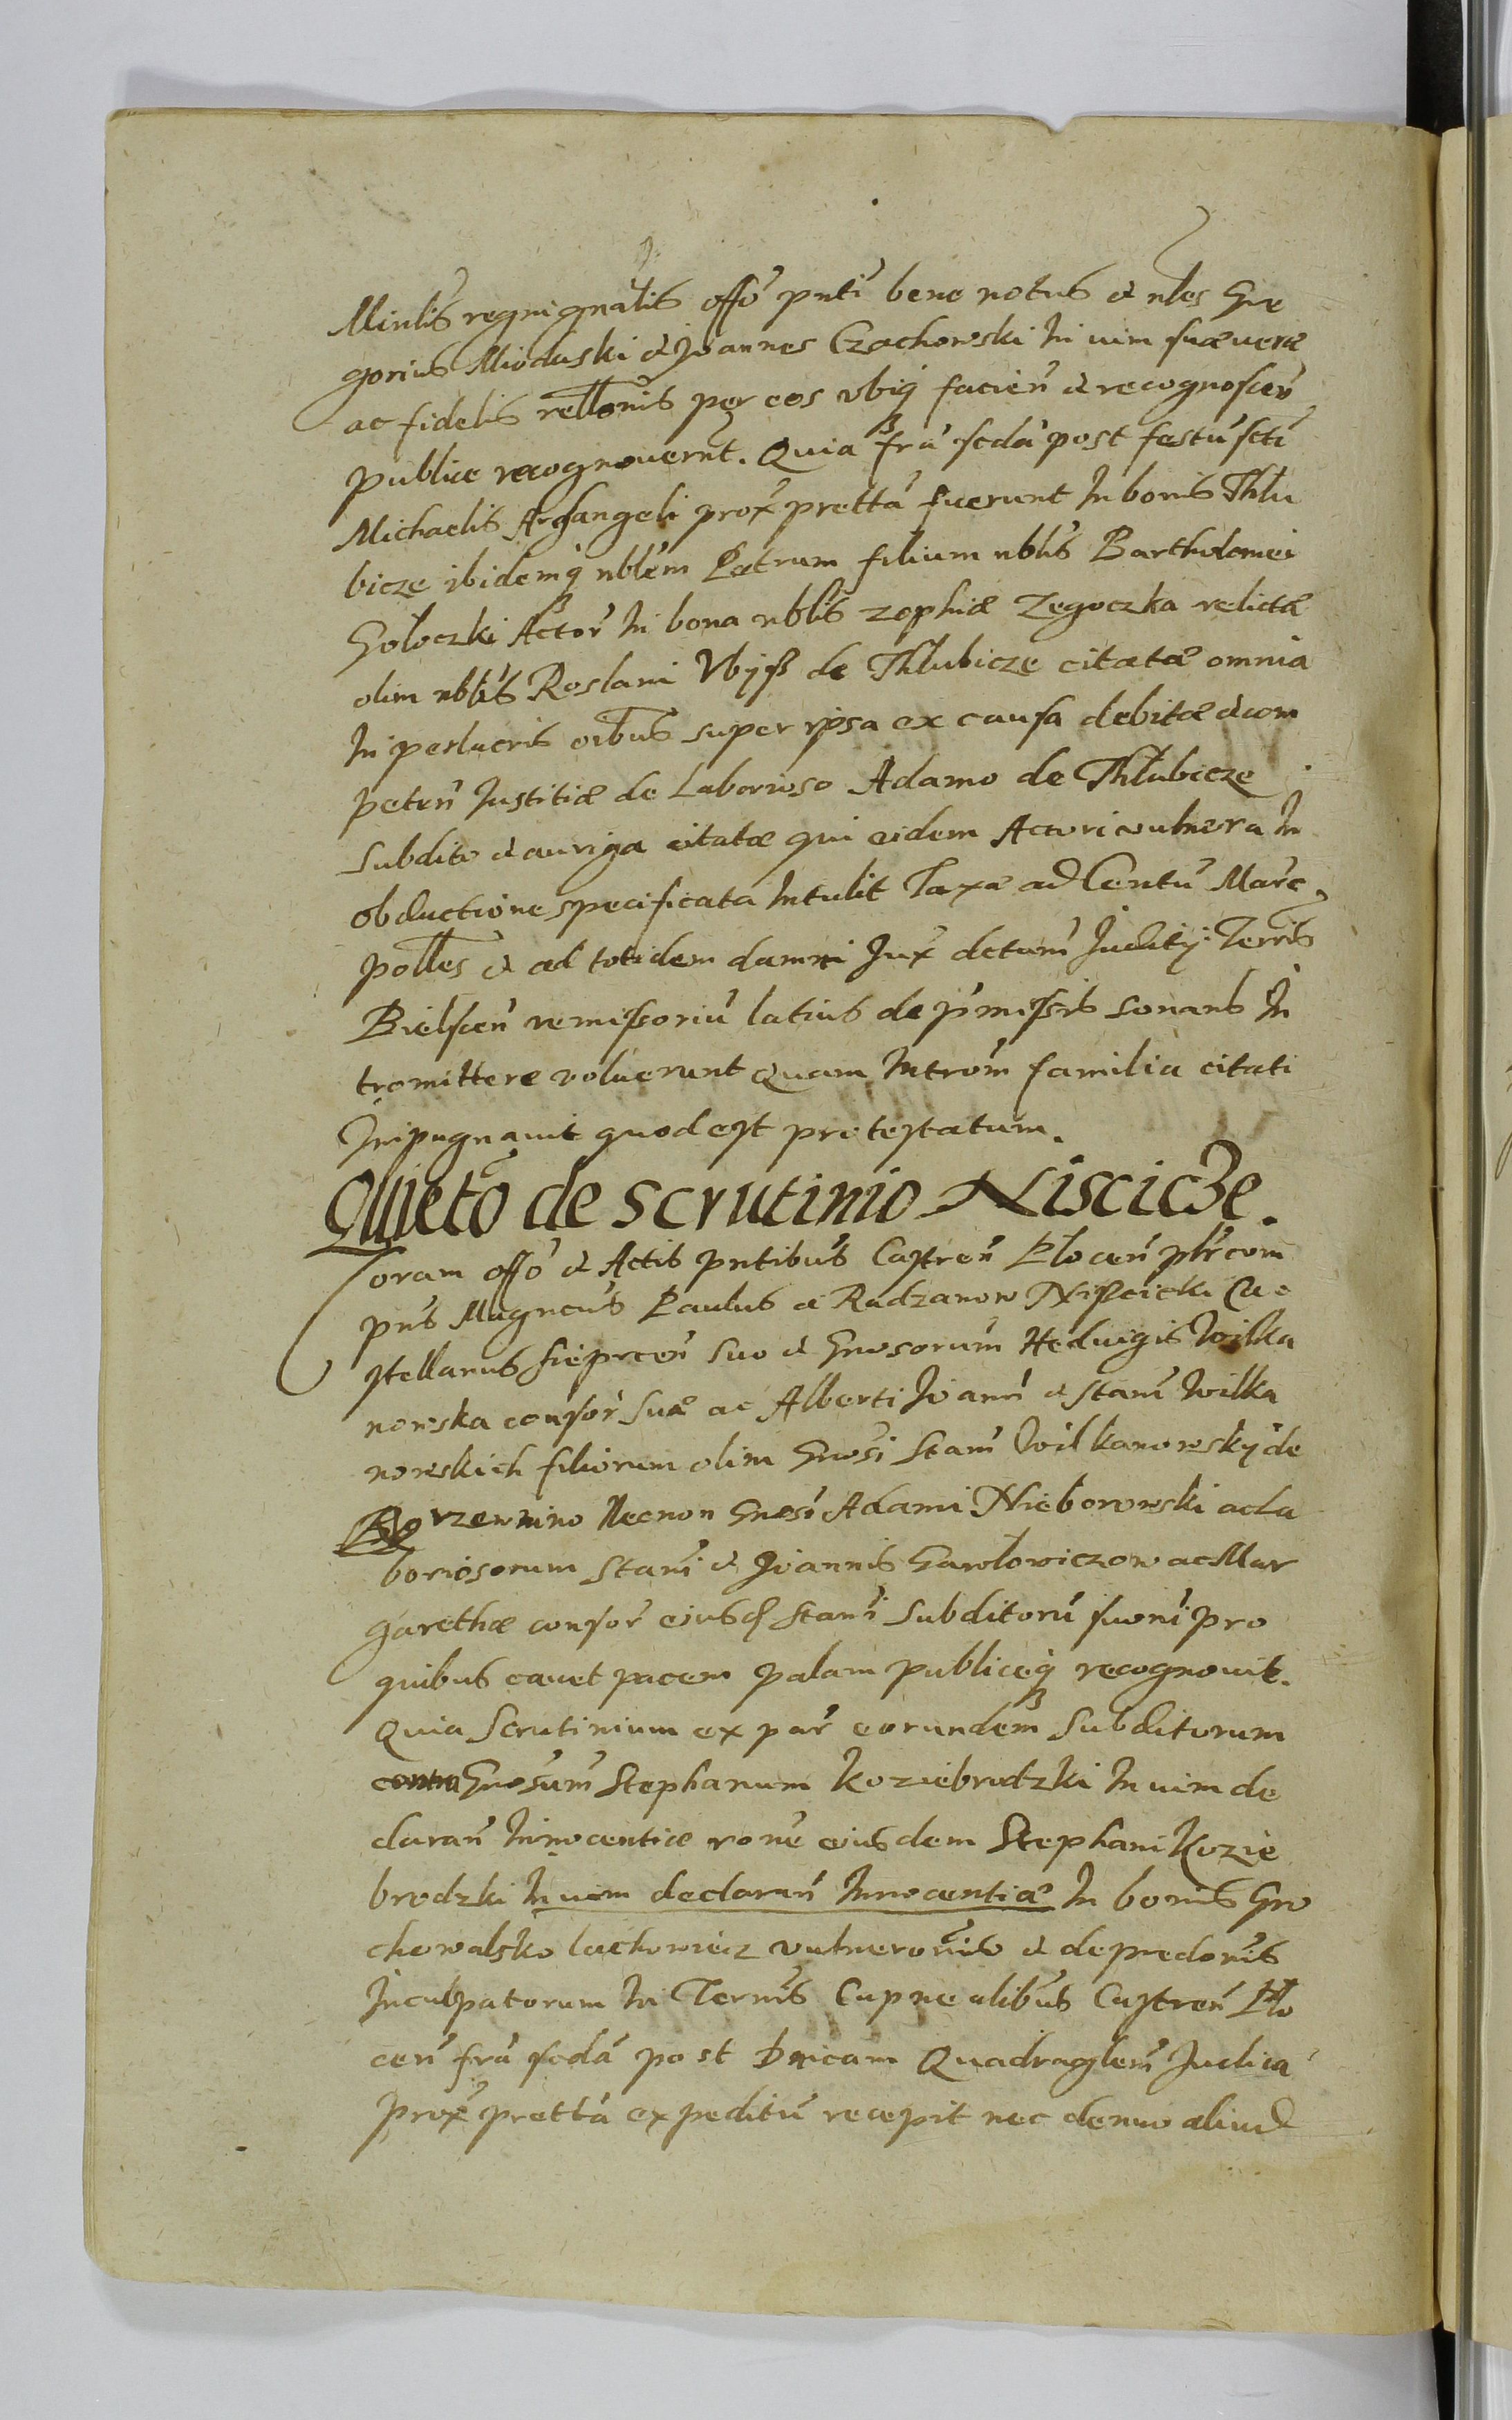 Minlis regni gnalis offo pnti bene notus et nbles Gre
gorius Mioduski et Joannes Czachowski In vim suæ veræ
ac fidelis rellonis per eos vbiq facien et recognoscen
publice recognouernt. Quia fra scda post festu scti
Michaelis Archangeli prox pretta fuerunt In bonis Thlu
bicze ibidemq nblem Petrum filium nblis Bartholomei
Goloczki Actor In bona nblis Zophiæ Zegoczka relictæ
olim nblis Roslani Vbysz de Thlubicze citatæ omnia
In peslucris oibus super ipsa ex causa debitæ et com
peten Justitiæ de Laborioso Adamo de Thlubicze
subdito et auriga citatæ qui eidem Actori vulnera In
obductione specificata Intulit Taxæ ad Centu Marc.
polles et ad totidem damni Jux dctum Juditij Terris
Bielscen remissoriu latius de pmissis sonans In
tromittere voluerunt Quam Introm familia citati
Inpugnauit quod est protestatum.
Quieto de scrutinio Niscicze.
Coram offo et Actis pntibus Castren Plocen pltr com
pns Magncus Paulus a Radzanow Nisczicki Ca
stellanus sieprcen suo et Gnosorum Heduigis Wilka
nowska consor suæ ac Alberti Joann et Stani Wilka
nowskich filiorum olim Gnosi Stani Wilkanowsky de
Borzewnino Necnon Gnosi Adami Nieborowski ac la
boriosorum Stani et Joannis Gawlowiczow ac Mar
garethæ consor eiusd Stani subditoru suoru pro
quibus cauet pacem palam publiceq recognouit.
Quia Scrutinium ex par eorundem subditorum
contra Gnosum Stephanum Koziebrodzki In vim de
claran Innocentiæ rone eiusdem Stephani Kozie
brodzki In vim declaran Innocentiæ In bonis Gro
chowalsko lachowiecz vulneronis et depredonis
Inculpatorum In Termis Cupne alibus Castren Plo
cen fra scda post Dnicam Quadraglem Judica
prox pretta expeditu recepit nec denuo aliud